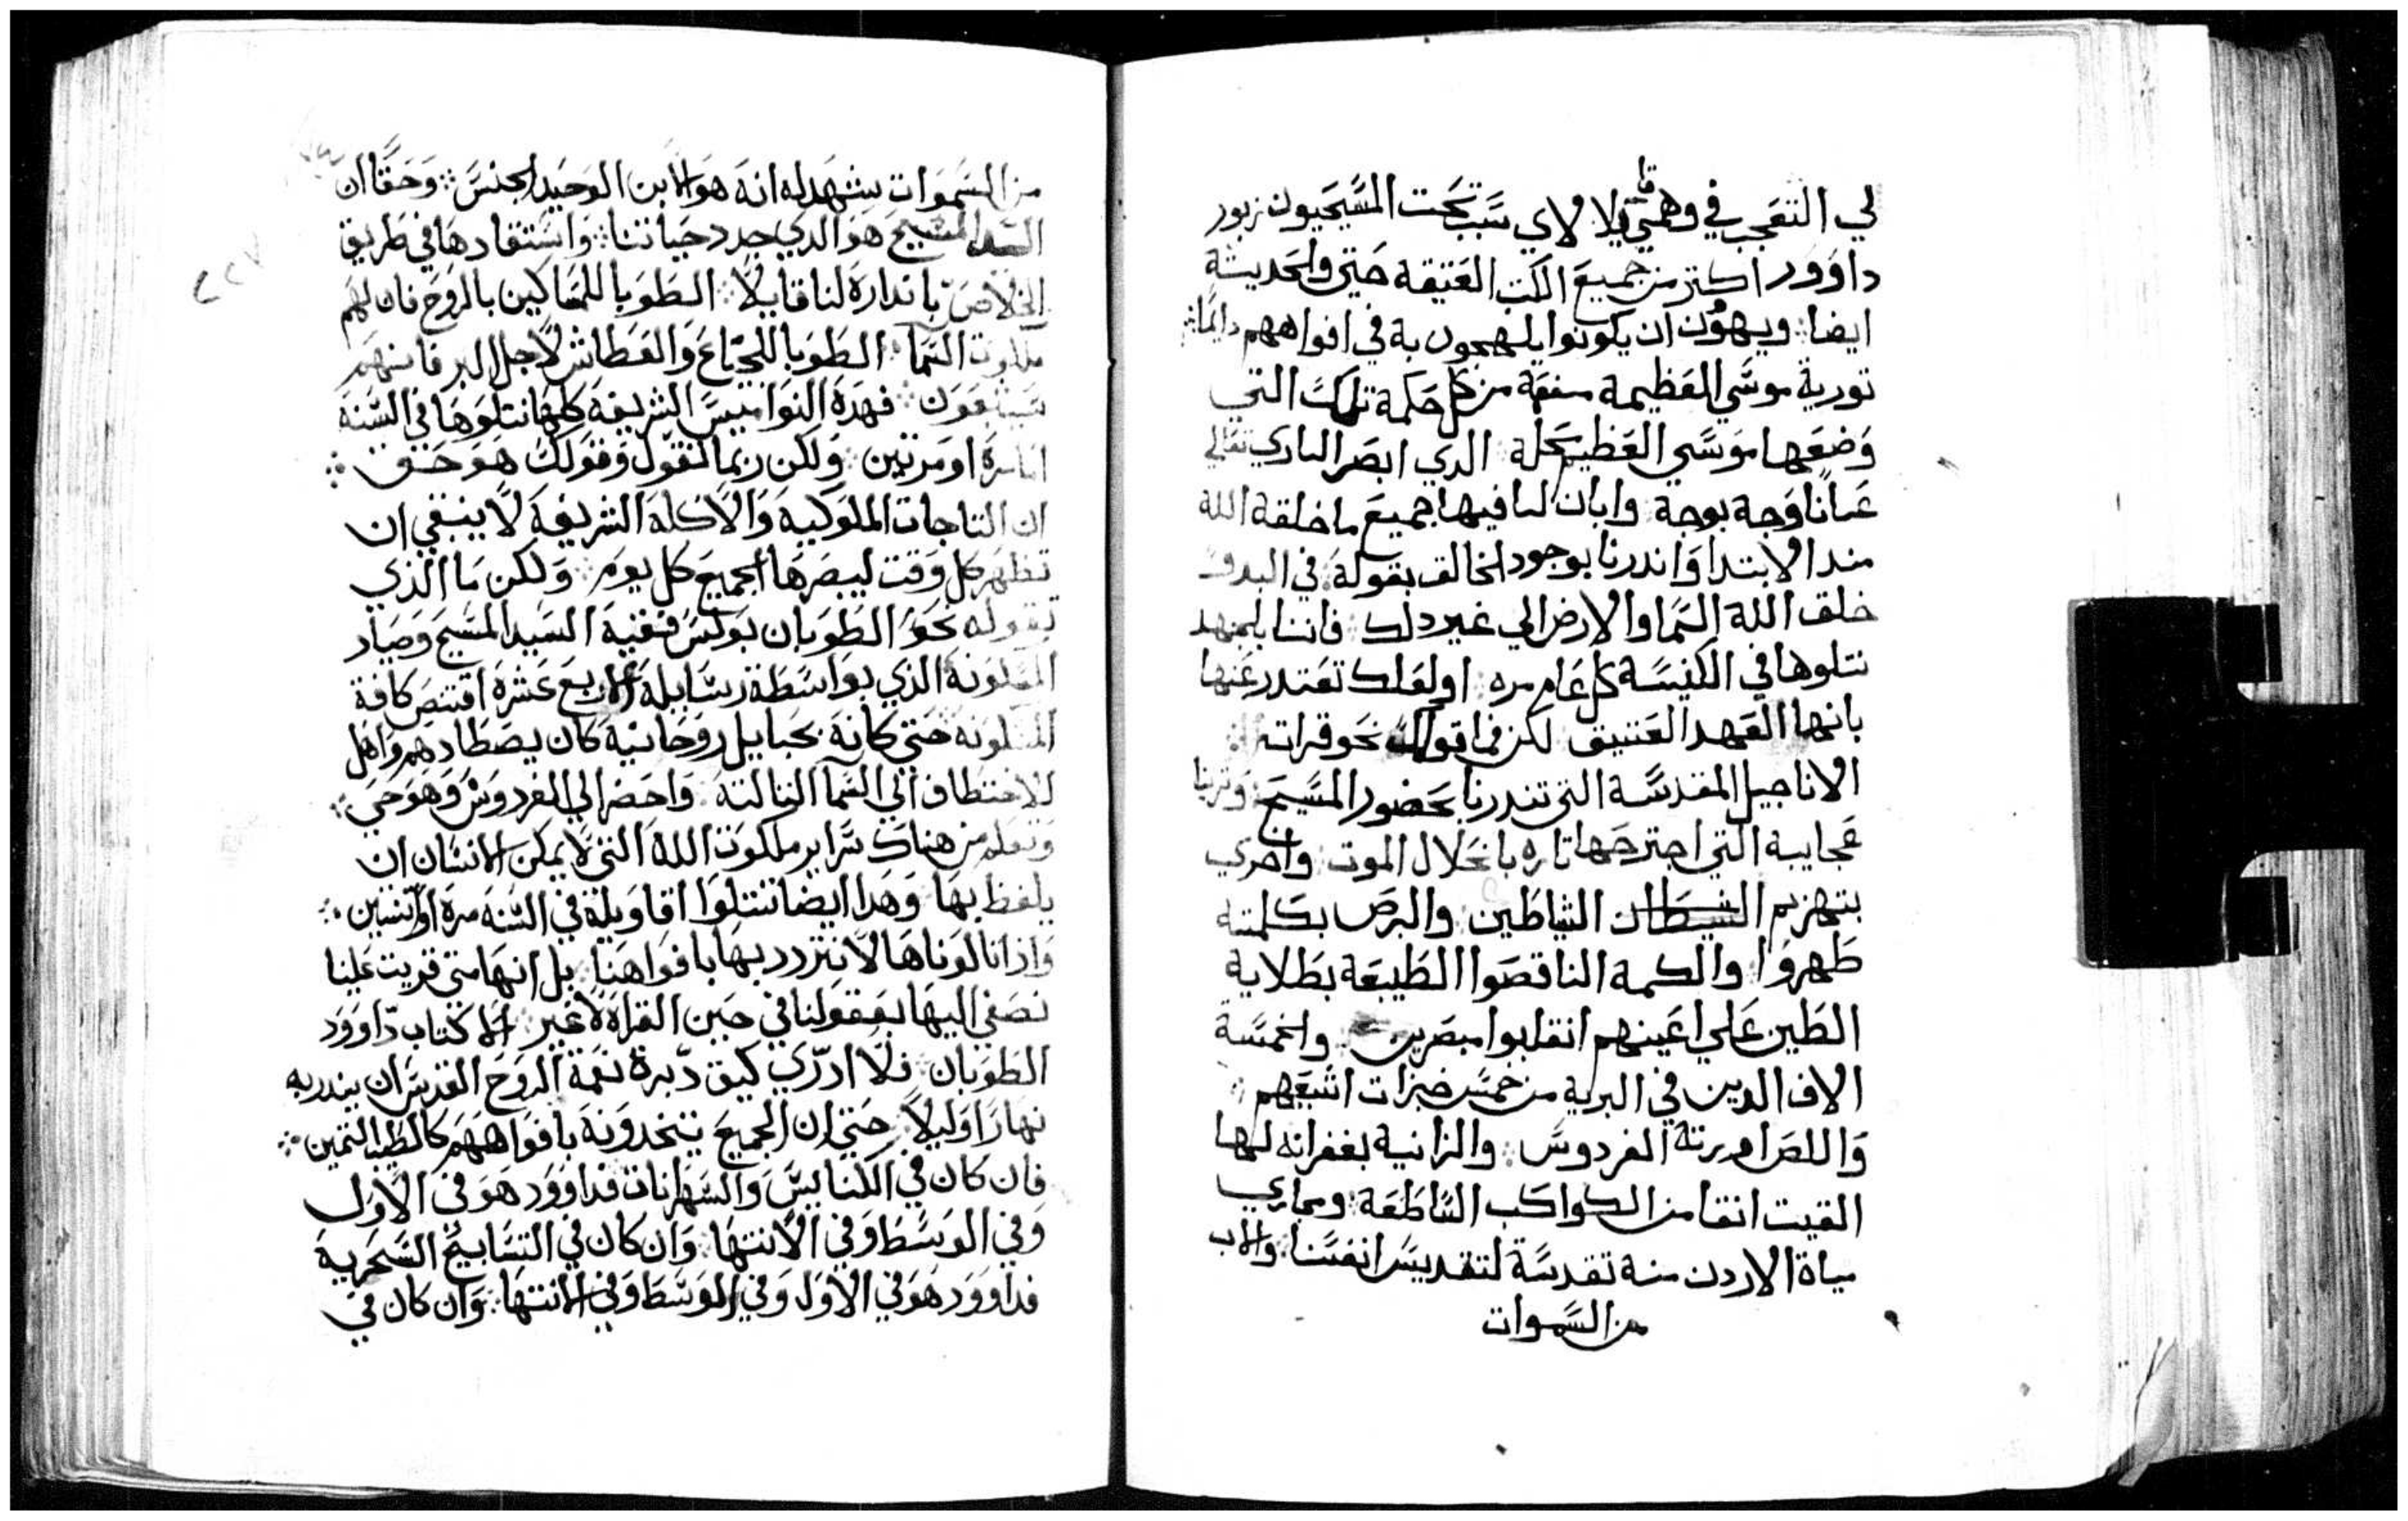 لي التعجب في وهمي قايلا لاي سبب تحت المسيحيون زبور
داوود اكتر من جميع الكتب العتيقة حتي والحديثة
ايضا ويهوُن ان يكونوا يلهجون به في افواههم دايمًا
تورية موسي العظيمة منفعة من كل حكمة تلك التي
وضعها موسي العظيم محلة الدي ابصر الباري تعالي
عيانًا وجه بوجه وابان لنا فيها جميع ما خلقة اللة
مند الابتدا واندرنا بوجود الخالق بقولة في البدو
خلق اللة السما والارض الي غير دلك فاننا بالجهد
نتلوها في الكنيسة كل عام مره اولعلك تعتدر عنها
بانها العهد العتيق لكن فما قولك نحو قراته
الاناجيل المقدسة التي تندرنا بحضور المسيح وترينا
عجايبة التي اجترحها تاره بانحلال الموت واخري
بتهزيم الشيطان الشياطين والبرص بكلمته
طهروا والكمه الناقصوا الطبيعة بطلاية
الطين علي اعينهم انقلبوا مبصرين والخمسة
الاف الدين في البرية من خمس خبزات اشبعهم
واللص اورثه الفردوس والزانية بغفرانه لها
القيت انقا من الكواكب الساطعة ومجاري
مياة الاردن منة تقدسة لتقديس انفسنا والاب
من السموات
من السموات يشهد له انه هو الابن الوحيد الجنس وحقًا ان
السيد المسيح هو الدي جدد حياتنا واستقادها في طريق
الخلاص باندارة لنا قايلًا الطوبا للمساكين بالروح فان لهم
ملكوت السما الطوبا للجياع والعطاش لاجل البر فانهم
يشبعون فهده النواميس الشريفة كلها نتلوها في السنة
اما مرة او مرتين ولكن ربما لتقول وقولك هو حق
ان التاجات الملوكية والاكلة الشريفة لا ينبغي ان
تظهر كل وقت ليبصرها الجميع كل يوم ولكن ما الذي
يقوله نحو الطوبان بولس قنية السيد المسيح وصياد
المسكونة الذي بواسطة رسايلة الاربع عشرة اقتنص كافة
المسكونة حتي كانة بحبايل روحانية كان يصطادهم واهل
للاختطاف الي السما الثالثة واحضر الي الفردوس وهو حي
وتعلم من هناك سراير ملكوت اللة التي لا يمكن الانسان ان
يلفظ بها وهدا ايضا نتلوا اقاويلة في السنة مرة او اتنين
واذا تالوناها لا نتردد بها بافواهنا بل انها متي قريت علينا
نصغي اليها بعقولنا في حين القراة لا غير اما كتاب داوود
الطوبان فلا ادري كيف دبرة نعمة الروح القدس ان يندر به
نهارًا وليلًا حتي ان الجميع يتخدونة بافواههم كالطيب التمين
فان كان في الكنايس والسهرانات فداوود هو في الاول
وفي الوسط وفي الانتها وان كان في التسابيح السحرية
فداوود هو في الاول وفي الوسط وفي الانتها وان كان في
٢٢٧